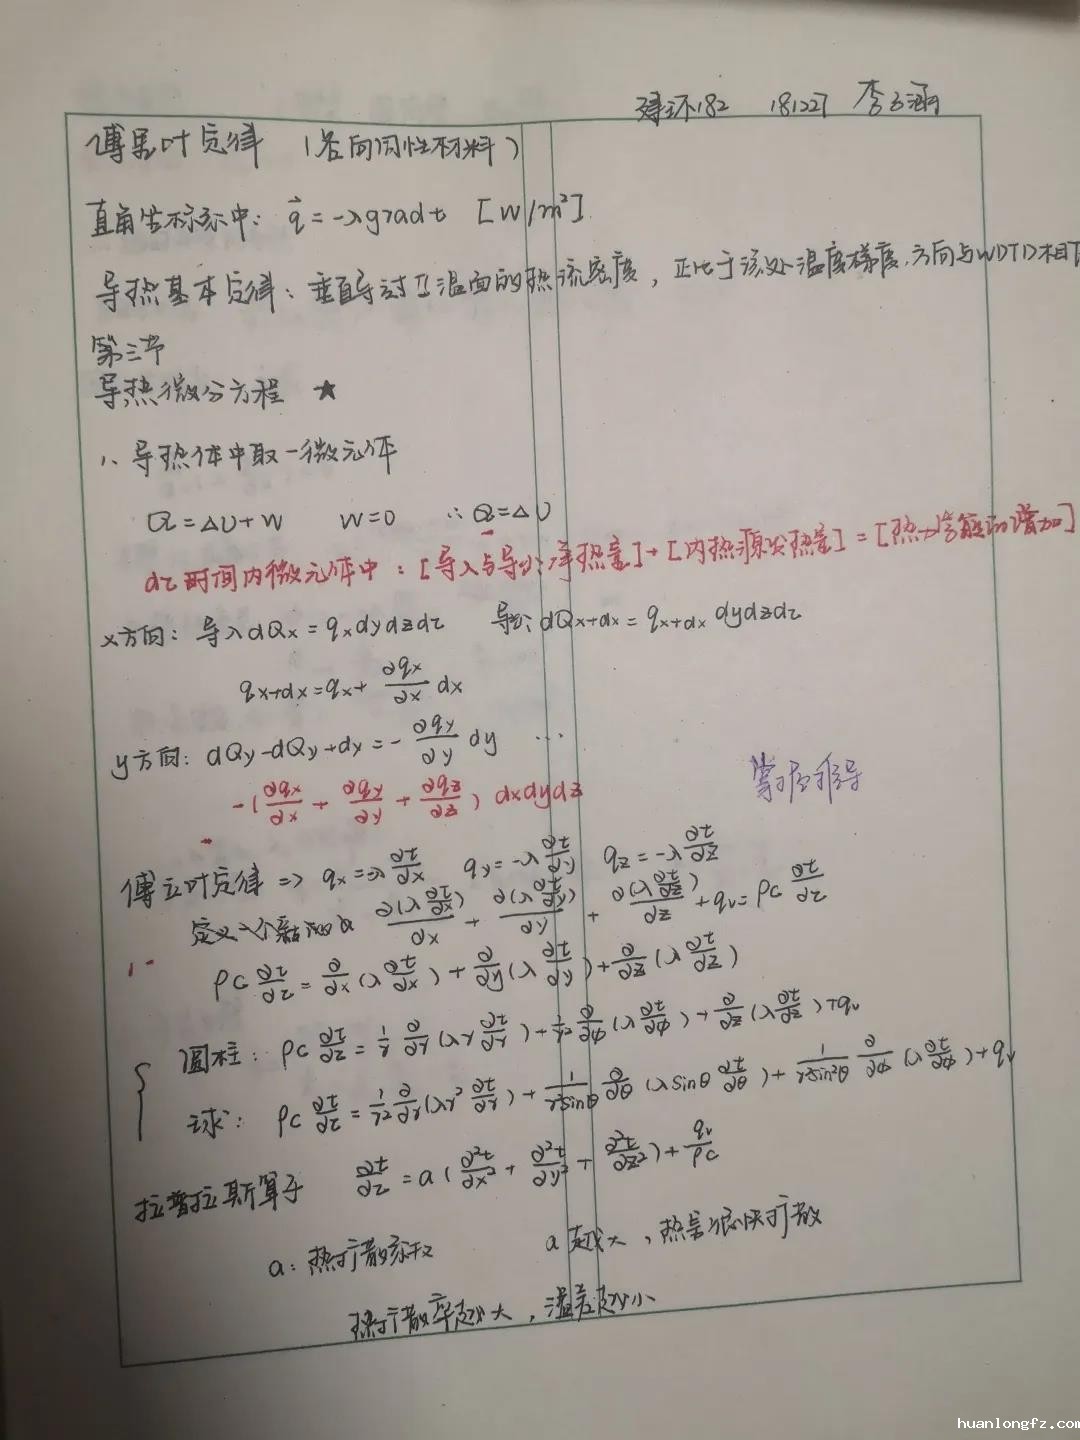 建环182 181227 李子涵
傅里叶定律 (各向同性材料)
直角坐标系中: q⃗ = -λgradt [W/m²]
导热基本定律: 垂直导过等温面的热流密度, 正比于该处温度梯度, 方向与 相
第三节
导热微分方程 ★
1、导热体中取一微元体
Q=ΔU+W W=0 ∴Q=ΔU
dτ时间内微元体中: [导入与导出净热量]+[内热源发热量]=[热力学能的增加]
x方向: 导入dQx=qxdydzdτ 导出: dQx+dx=qx+dx dydzdτ
qx+dx=qx+ ∂qx/∂x dx
y方向: dQy-dQy+dy=- ∂qy/∂y dy …
-(∂qx/∂x + ∂qy/∂y + ∂qz/∂z) dxdydz
掌握推导
傅立叶定律 => qx=-λ∂t/∂x qy=-λ∂t/∂y qz=-λ∂t/∂z
定义一个 ∂(λ∂t/∂x)/∂x + ∂(λ∂t/∂y)/∂y + ∂(λ∂t/∂z)/∂z +qv=ρc ∂t/∂τ
ρc ∂t/∂τ = ∂/∂x(λ∂t/∂x) + ∂/∂y(λ∂t/∂y) + ∂/∂z(λ∂t/∂z)
圆柱: ρc ∂t/∂τ = 1/r ∂/∂r(λr∂t/∂r) + 1/r² ∂/∂φ(λ∂t/∂φ) + ∂/∂z(λ∂t/∂z)+qv
球: ρc ∂t/∂τ = 1/r² ∂/∂r(λr²∂t/∂r) + 1/r²sinθ ∂/∂θ(λsinθ∂t/∂θ) + 1/r²sin²θ ∂/∂φ(λ∂t/∂φ)+qv
拉普拉斯算子 ∂t/∂τ = a(∂²t/∂x² + ∂²t/∂y² + ∂²t/∂z²) + qv/ρc
a: 热扩散系数 a越大, 热量很快扩散
热扩散率越大, 温差越小
huanlongfz.com